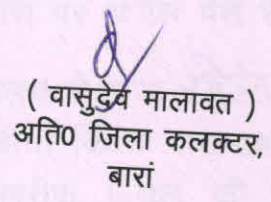 ( वासुदेव मालावत )
अति0 जिला कलक्टर,
बारां